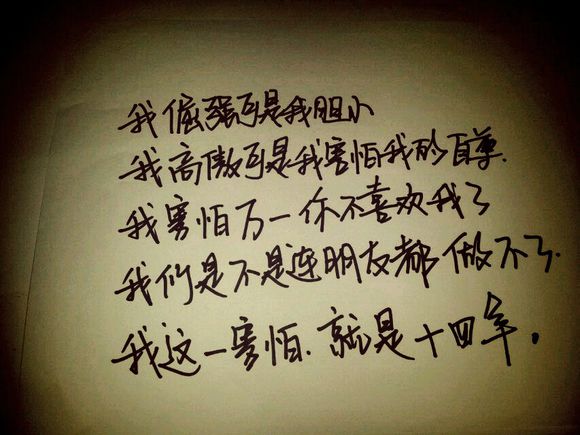 我倔强可是我胆小
我高傲可是我害怕我的自尊.
我害怕万一你不喜欢我了
我们是不是连朋友都做不了.
我这一害怕.就是十四年.